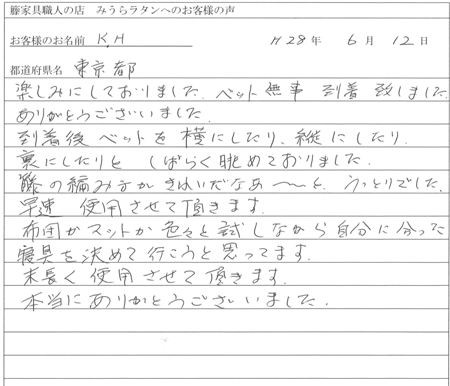 籐家具職人の店 みうらラタンへのお客様の声
お客様のお名前 K.H H28年 6月 12日
都道府県名 東京都
楽しみにしておりました。ベット無事 到着 致しました
ありがとうございました。
到着後 ベットを 横にしたり、縦にしたり、
裏にしたりと しばらく眺めておりました。
籐の編み方が きれいだなあ〜と、うっとりでした。
早速 使用させて頂きます。
布団かマットか 色々と 試しながら 自分に合った
寝具を決めて行こうと思ってます。
末長く 使用させて頂きます。
本当にありがとうございました。